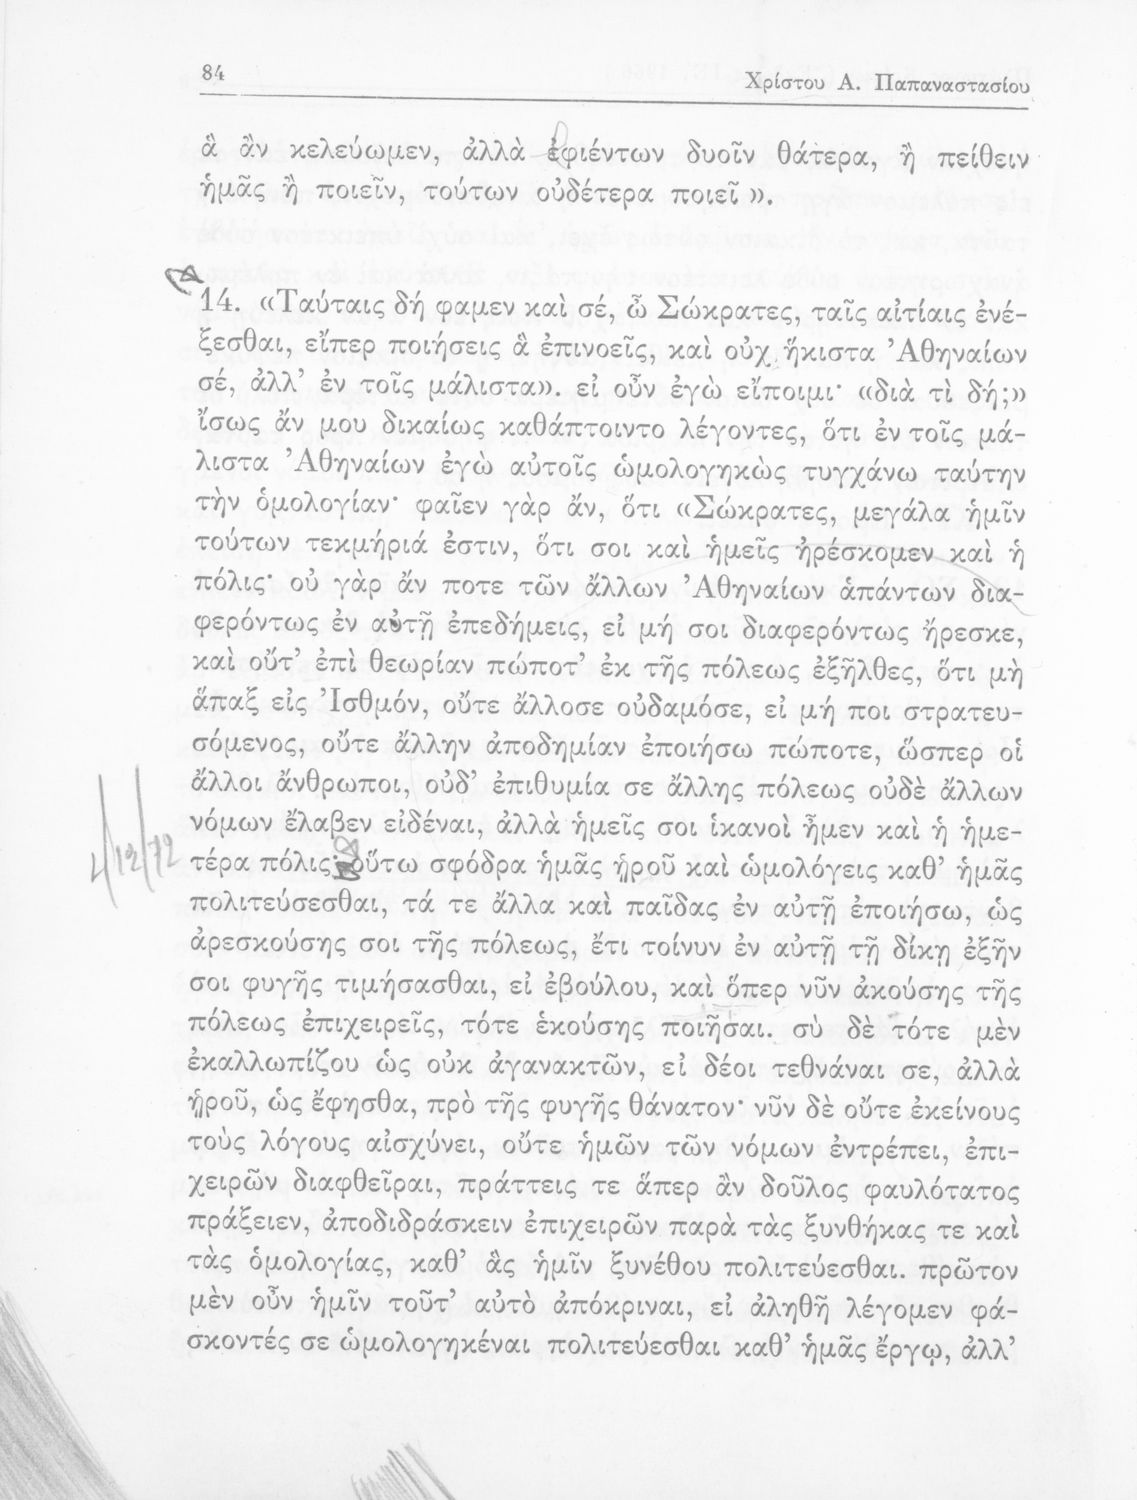 84
Χρίστου Α. Παπαναστασίου
ἃ ἂν κελεύωμεν, ἀλλὰ ἐφιέντων δυοῖν θάτερα, ἢ πείθειν
ἡμᾶς ἢ ποιεῖν, τούτων οὐδέτερα ποιεῖ».
14. «Ταύταις δή φαμεν καὶ σέ, ὦ Σώκρατες, ταῖς αἰτίαις ἐνέ-
ξεσθαι, εἴπερ ποιήσεις ἃ ἐπινοεῖς, καὶ οὐχ ἥκιστα Ἀθηναίων
σέ, ἀλλ’ ἐν τοῖς μάλιστα». εἰ οὖν ἐγὼ εἴποιμι· «διὰ τὶ δή;»
ἴσως ἄν μου δικαίως καθάπτοιντο λέγοντες, ὅτι ἐν τοῖς μά-
λιστα Ἀθηναίων ἐγὼ αὐτοῖς ὡμολογηκὼς τυγχάνω ταύτην
τὴν ὁμολογίαν· φαῖεν γὰρ ἄν, ὅτι «Σώκρατες, μεγάλα ἡμῖν
τούτων τεκμήριά ἐστιν, ὅτι σοι καὶ ἡμεῖς ἠρέσκομεν καὶ ἡ
πόλις· οὐ γὰρ ἄν ποτε τῶν ἄλλων Ἀθηναίων ἁπάντων δια-
φερόντως ἐν αὐτῇ ἐπεδήμεις, εἰ μή σοι διαφερόντως ἤρεσκε,
καὶ οὔτ’ ἐπὶ θεωρίαν πώποτ’ ἐκ τῆς πόλεως ἐξῆλθες, ὅτι μὴ
ἅπαξ εἰς Ἰσθμόν, οὔτε ἄλλοσε οὐδαμόσε, εἰ μή ποι στρατευ-
σόμενος, οὔτε ἄλλην ἀποδημίαν ἐποιήσω πώποτε, ὥσπερ οἱ
ἄλλοι ἄνθρωποι, οὐδ’ ἐπιθυμία σε ἄλλης πόλεως οὐδὲ ἄλλων
νόμων ἔλαβεν εἰδέναι, ἀλλὰ ἡμεῖς σοι ἱκανοὶ ἦμεν καὶ ἡ ἡμε-
4/12/72
τέρα πόλις· οὕτω σφόδρα ἡμᾶς ᾑροῦ καὶ ὡμολόγεις καθ’ ἡμᾶς
πολιτεύσεσθαι, τά τε ἄλλα καὶ παῖδας ἐν αὐτῇ ἐποιήσω, ὡς
ἀρεσκούσης σοι τῆς πόλεως, ἔτι τοίνυν ἐν αὐτῇ τῇ δίκῃ ἐξῆν
σοι φυγῆς τιμήσασθαι, εἰ ἐβούλου, καὶ ὅπερ νῦν ἀκούσης τῆς
πόλεως ἐπιχειρεῖς, τότε ἑκούσης ποιῆσαι. σὺ δὲ τότε μὲν
ἐκαλλωπίζου ὡς οὐκ ἀγανακτῶν, εἰ δέοι τεθνάναι σε, ἀλλὰ
ᾑροῦ, ὡς ἔφησθα, πρὸ τῆς φυγῆς θάνατον· νῦν δὲ οὔτε ἐκείνους
τοὺς λόγους αἰσχύνει, οὔτε ἡμῶν τῶν νόμων ἐντρέπει, ἐπι-
χειρῶν διαφθεῖραι, πράττεις τε ἅπερ ἂν δοῦλος φαυλότατος
πράξειεν, ἀποδιδράσκειν ἐπιχειρῶν παρὰ τὰς ξυνθήκας τε καὶ
τὰς ὁμολογίας, καθ’ ἃς ἡμῖν ξυνέθου πολιτεύεσθαι. πρῶτον
μὲν οὖν ἡμῖν τοῦτ’ αὐτὸ ἀπόκριναι, εἰ ἀληθῆ λέγομεν φά-
σκοντές σε ὡμολογηκέναι πολιτεύεσθαι καθ’ ἡμᾶς ἔργῳ, ἀλλ’